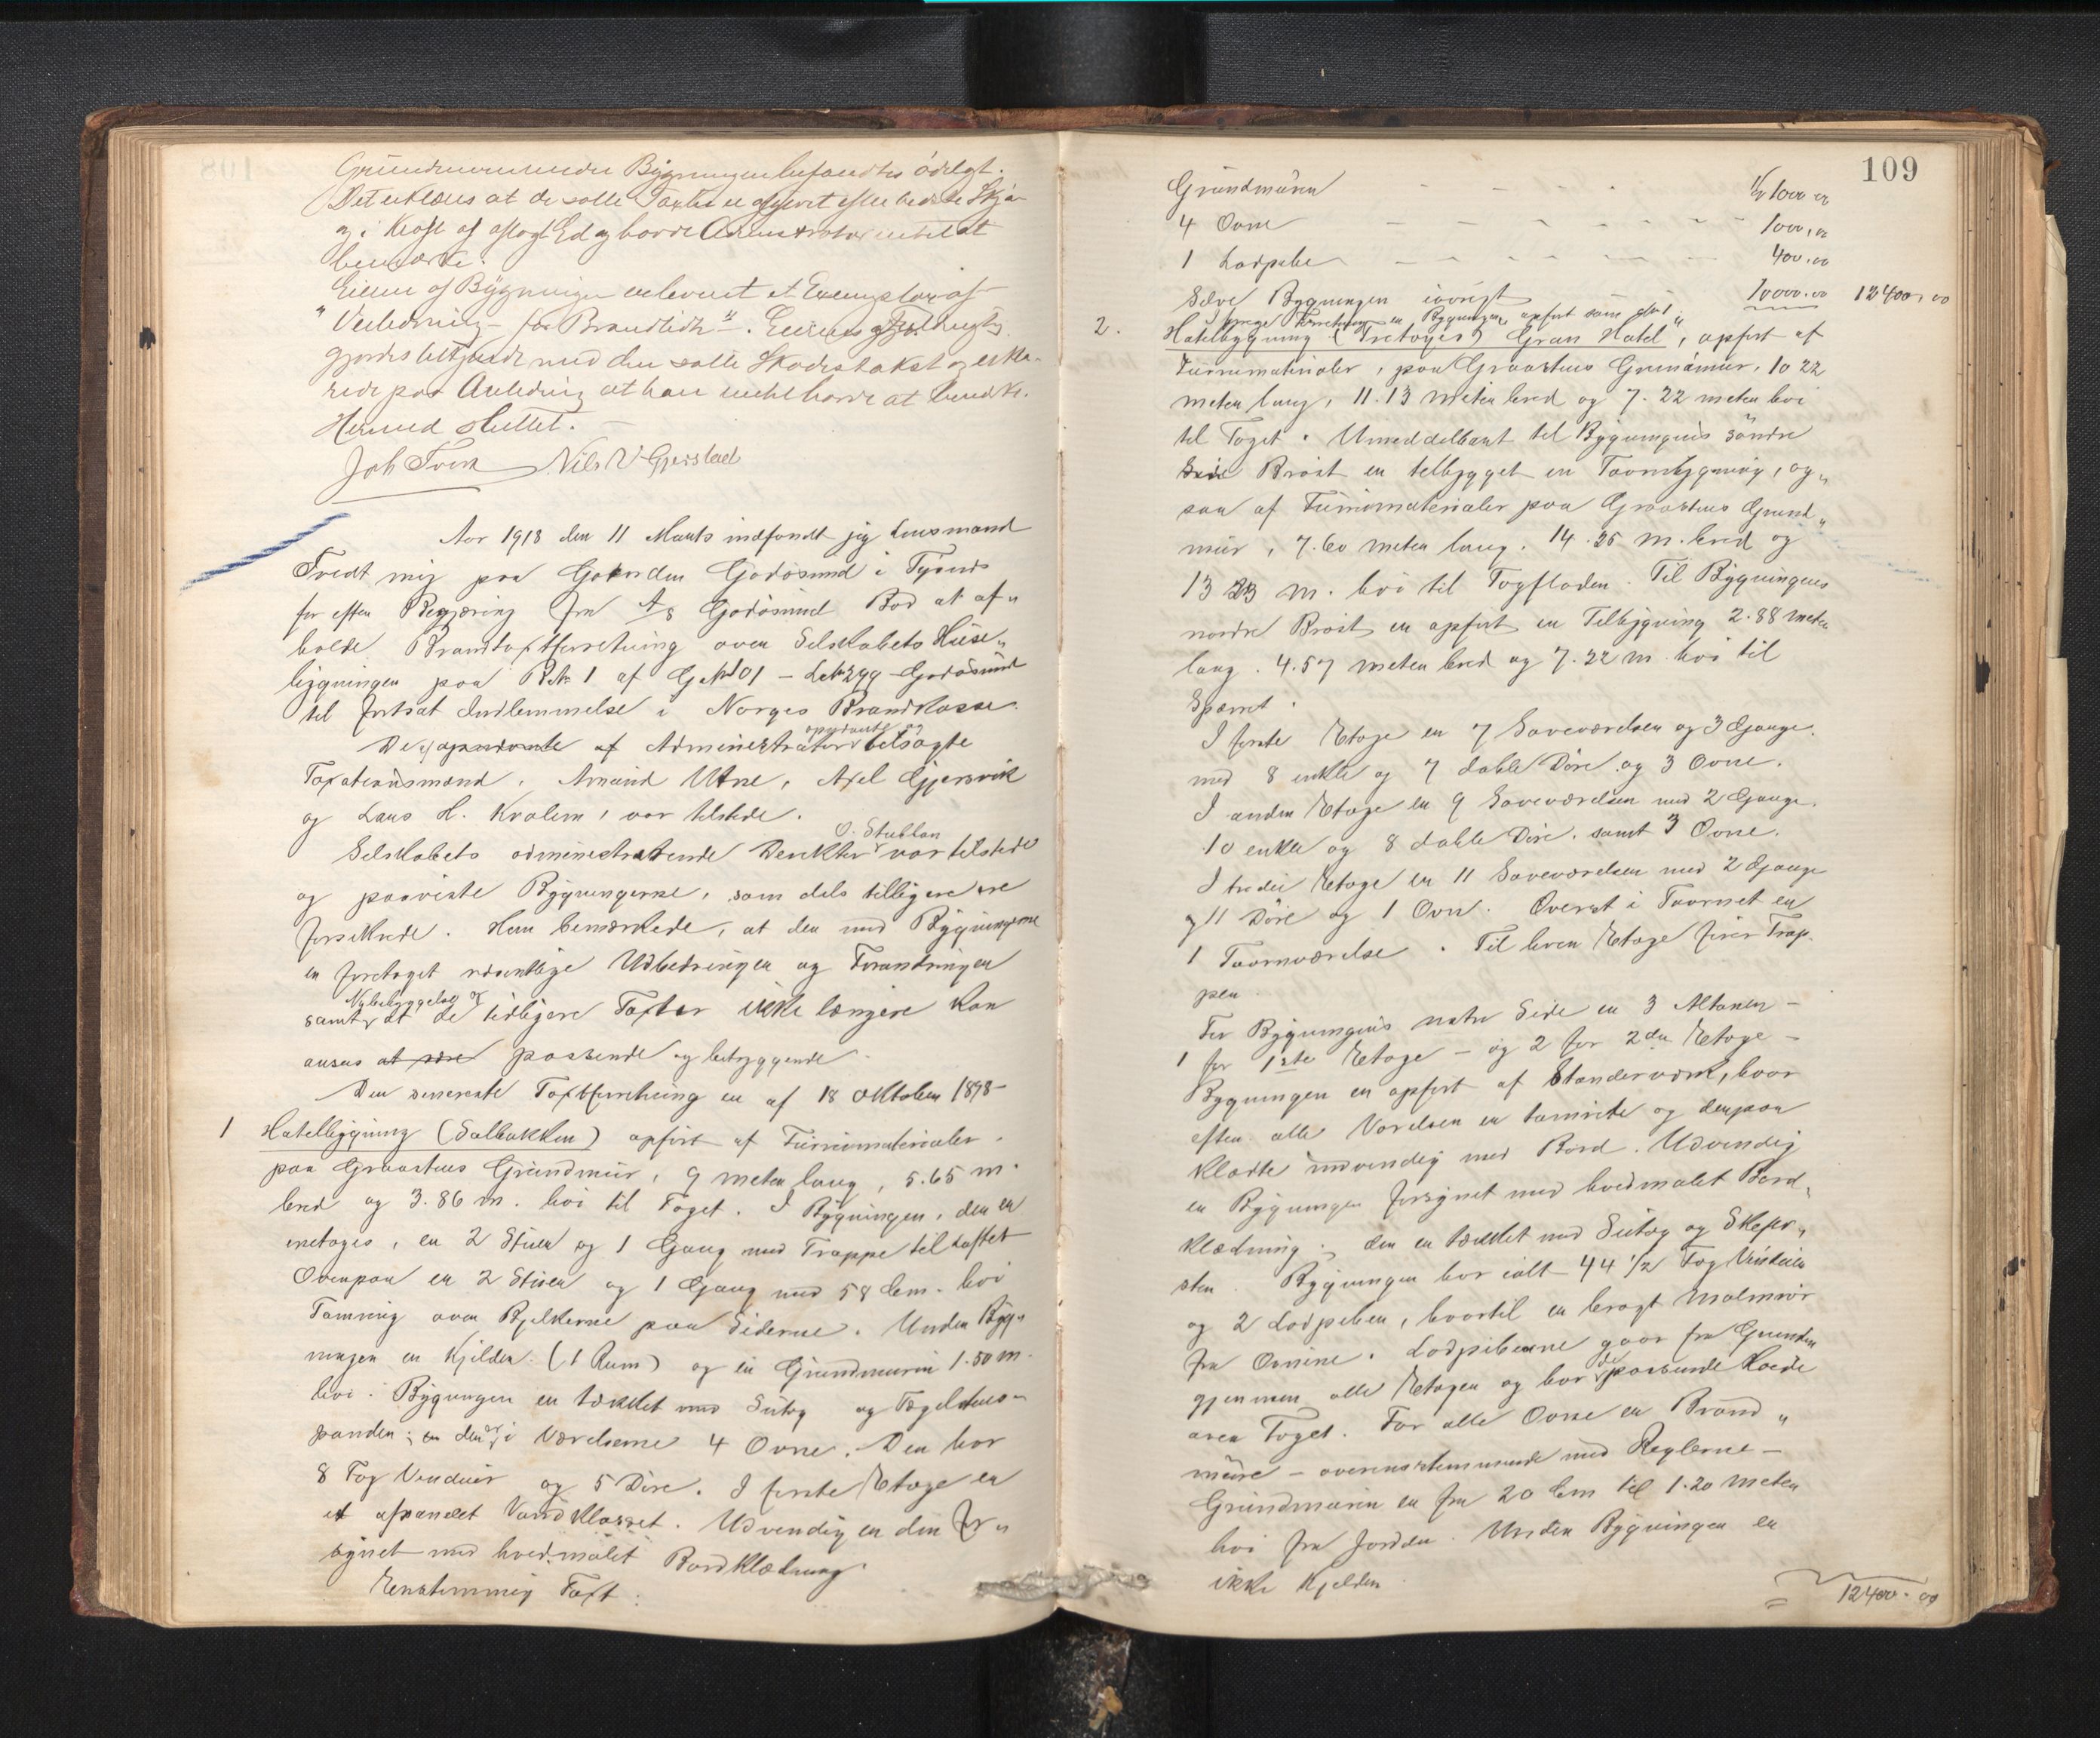 Grundmuren under Bygningen befandtes ödelagt.
Det erklæres at desatte Taxter er afgivet efter bedste Skjøn
og i Kraft af aflagt Ed og havde Administrator intet at
bemærke.
Eieren af Bygningen leveret et Exemplar af
"Veiledning for Brandlidte". Eieren
gjordes bekjendt med den satte Skadestakst og erklæ-
rede paa Anledning at han intet havde at bemerke.
Hermed sluttet.
Joh Tvedt Nils N Gjerstad
Aar 1918 den 11 Marts indfandt jeg Lensmand
Tvedt mig paa Gaarden Godösund i Tysnes
for efter Begjæring fra A/s Godösund Bad at af„
holde Brandtaxtforretning over Selskabets Huse„
bygninger paa B.No 1 af G.No 101 – LNo 299 Godösund
til fortsat Indlemmelse i Norges Brandkasse.
opnævnte og
De af Administrator tilsagte
Taxationsmænd, Amund Utne, Axel Gjersvik
og Lars H. Kvalem, var tilstede.
O. Stubban
Selskabets administrerende Direktør var tilstede
og paaviste Bygningerne, som dels tilligere ere
forsikrede. Han bemærkede, at der med Bygningerne
er foretaget væsentlige Udbedringer og Forandringer
Nybebyggelse og
samt at de tidligere Taxter ikke længere kan
ansees at være passende og betryggende.
Den seneste Taxtforretning er af 18 oktober 1898–
1 Hotelbygning (Solbakken) opført af Furumaterialer,
paa Graastens Grundmur, 9 meter lang, 5.65 m.
bred og 3.86 m. høi til Taget. I Bygningen, der er
enetages, er 2 Stuer og 1 Gang med Trappe til Loftet
Ovenpaa er 2 Stuer og 1 Gang med 58 Cm. høi
Tømring over Bjelkerne paa Siderne. Under Byg„
ningen er Kjelder (1 Rum) og er Grundmuren 1.50 m.
høi. Bygningen er tækket med Sutag og Tegelstens„
pander; er der i Værelserne 4 Ovne. Den har
8 Fag Vinduer og 5 Döre. I förste Etage er
et afpanelet Vandklosset. Udvendig er den for„
synet med hvidmalet Bordklædning.
Enstemmig Taxt:
109
Grundmuren – – – – Kr 1000.00
4 Ovne – – – – – – 1000,00
1 Ladpibe – – – – – – 400.00
Selve Bygningen iøvrigt 10000.00 12400,00
I forrige Forretning er Bygningen opført som
2. Hotelbygning (Tretages) "Gran Hotel", opført af
Furumaterialer, paa Graastens Grundmur, 10 22
meter lang, 11.13 meter bred og 7.22 meter høi
til Taget. Umiddelbart til Bygningens søndre
Side Bröst er tilbygget en Taarnbygning, og„
saa af Furumaterialer paa Graastens Grund„
mur, 7.60 meter lang. 14.25 m. bred og
13 23 m. høi til Tagfladen. Til Bygningens
nordre Bröst er opført en Tilbygning 2.88 meter
lang. 4.57 meter bred og 7.22 m. høi til
Spærret.
I første Etage er 7 Soveværelser og 3 Gange.
med 8 enkle og 7 doble Döre og 3 Ovne.
I anden Etage er 9 Soveværelser med 2 Gange.
10 enkle og 8 doble Döre. samt 3 Ovne.
I tredie Etage er 11 Soveværelser med 2 Gange
og 11 Döre og 1 Ovn. Øverst i Taarnet er
1 Taarnværelse. Til hver Etage fører Trap-
per.
For Bygningens vestre Side er 3 Altaner –
1 for 1ste Etage – og 2 for 2den Etage –
Bygningen er opført af Standerværk, hvor
efter alle Værelser er tømrede og derpaa
klædte indvendig med Bord. Udvendig
er Bygningen forsynet med hvidmalet Bord„
klædning; den er tækket med Sutag og Skifer„
sten. Bygningen har ialt 44 1/2 Fag Vinduer
og 2 Ladpiber, hvortil er bragt Malmrør
fra Ovnene. Ladpiberne gaar fra Grunden
gjennem alle Etager og har de passende Høide
over Taget. For alle Ovne er Brand„
mure – overensstemmende med Reglerne –
Grundmuren er fra 20 Cm til 1.20 meter
høi fra Jorden. Under Bygningen er
ikke Kjelder.
12400.00